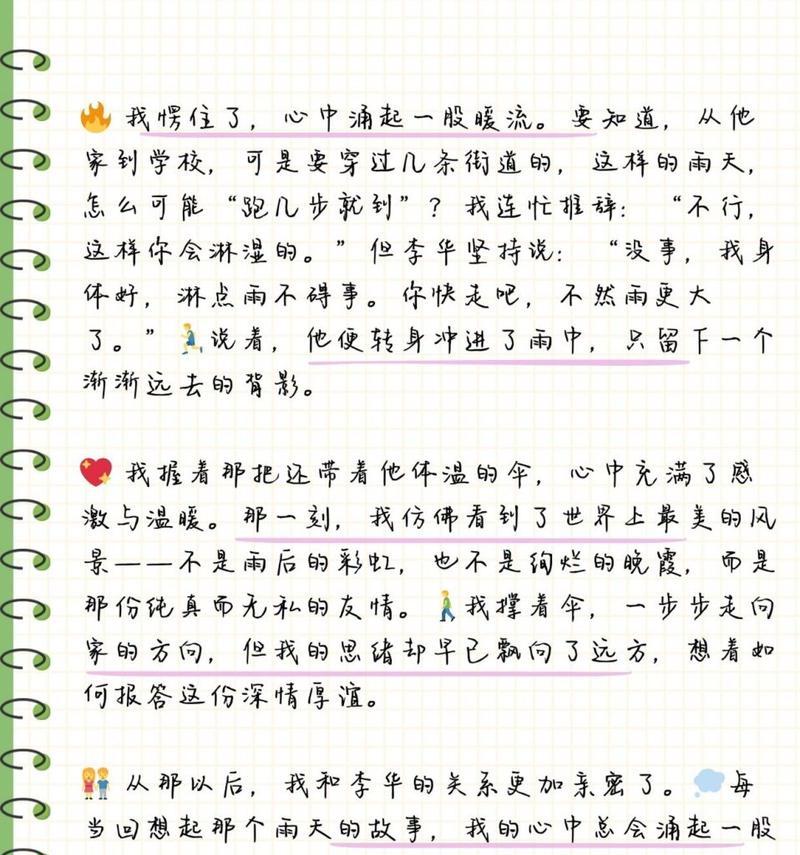 🔥 我愣住了，心中涌起一股暖流。要知道，从他
家到学校，可是要穿过几条街道的，这样的雨天，
怎么可能“跑几步就到”？我连忙推辞：“不行，
这样你会淋湿的。”但李华坚持说：“没事，我身
体好，淋点雨不碍事。你快走吧，不然雨更大
了。”🏃‍♂️说着，他便转身冲进了雨中，只留下一个
渐渐远去的背影。
💖 我握着那把还带着他体温的伞，心中充满了感
激与温暖。那一刻，我仿佛看到了世界上最美的风
景——不是雨后的彩虹，也不是绚烂的晚霞，而是
那份纯真而无私的友情。🚶‍♂️我撑着伞，一步步走向
家的方向，但我的思绪却早已飘向了远方，想着如
何报答这份深情厚谊。
👫 从那以后，我和李华的关系更加亲密了。💭每
当回想起那个雨天的故事，我的心中总会涌起一股